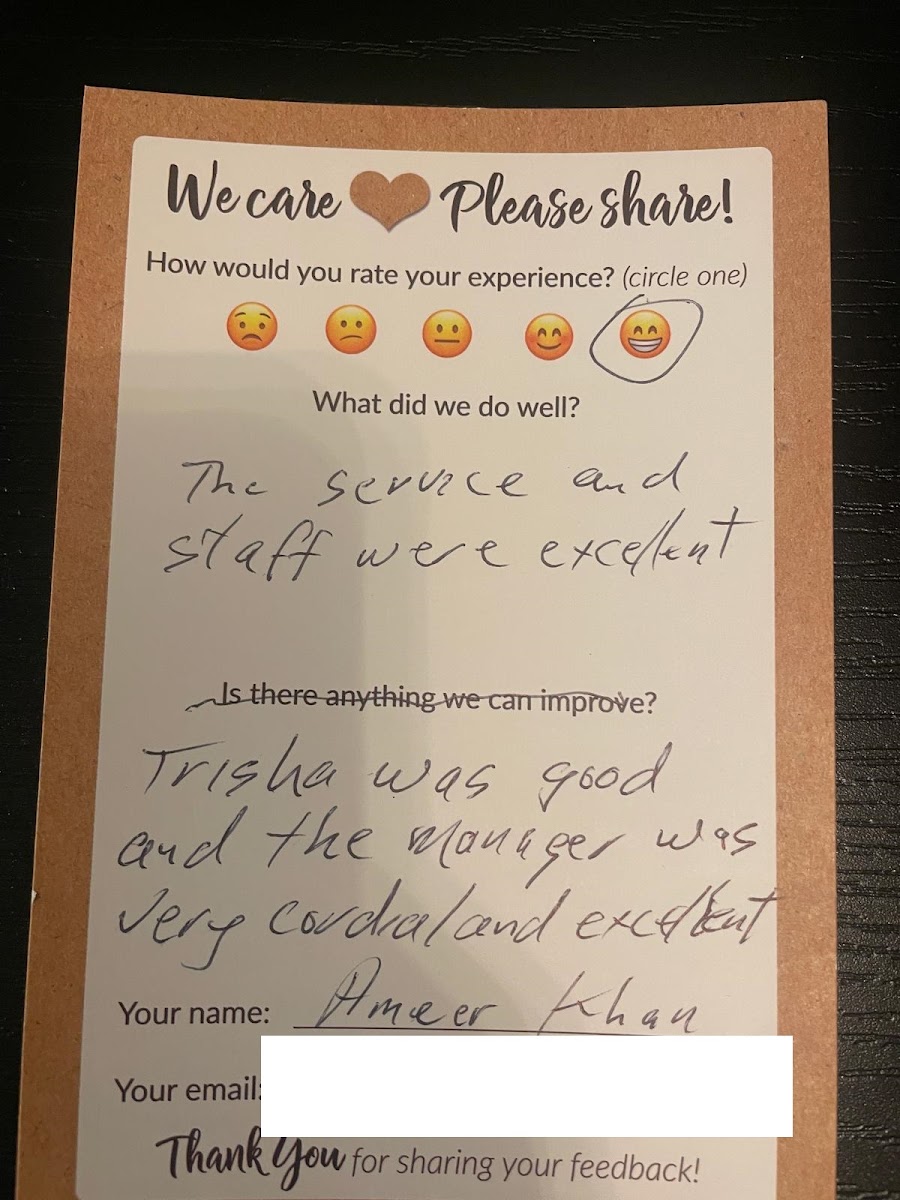 We care Please share!
How would you rate your experience? (circle one)
What did we do well?
The service and
staff were excellent
Is there anything we can improve?
Trisha was good
and the manager was
very cordial and excellent
Your name: Ameer Khan
Your email:
Thank You for sharing your feedback!